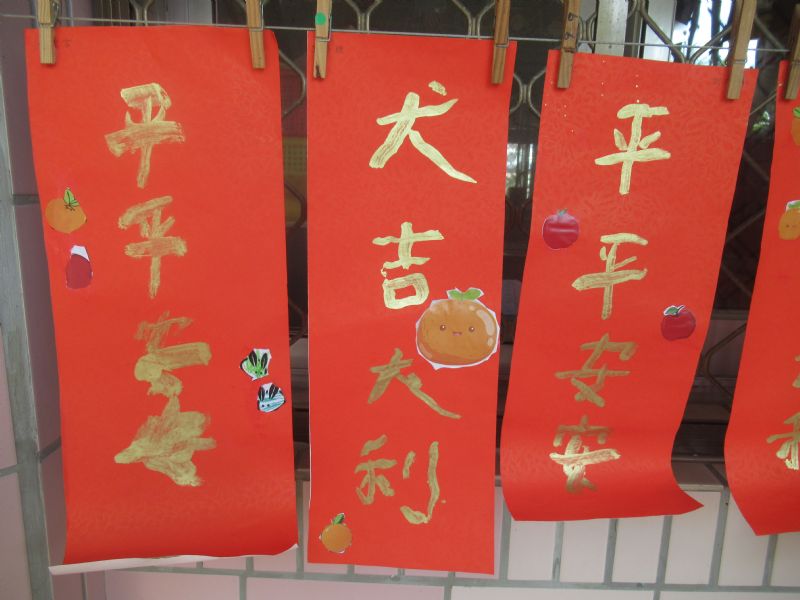 平平安安
犬吉大利
平平安安